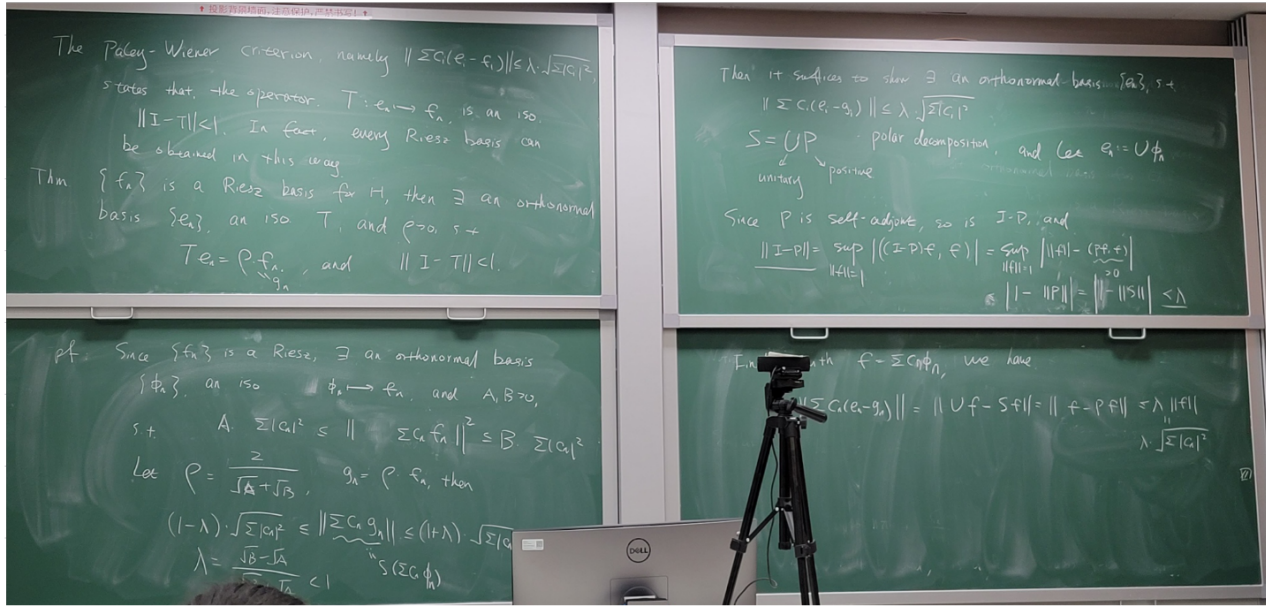 投影背景墙面,注意保护,严禁书写!
The Paley-Wiener criterion, namely ‖Σci(ei - fi)‖ ≤ λ·√Σ|ci|²,
states that, the operator. T: en ↦ fn is an iso.
‖I-T‖<1. In fact, every Riesz basis can
be obtained in this way
Thm {fn} is a Riesz basis for H, then ∃ an orthonormal
basis {en}, an iso T, and ρ>0, s.t
Ten = ρ·fn, and ‖I-T‖<1.
gn
pf. Since {fn} is a Riesz, ∃ an orthonormal basis
{ϕn}, an iso ϕn ↦ fn, and A,B>0,
s.t. A·Σ|cn|² ≤ ‖Σcn fn‖² ≤ B·Σ|cn|²
Let ρ = 2/(√A+√B), gn = ρ·fn, then
(1-λ)·√Σ|cn|² ≤ ‖Σcn gn‖ ≤ (1+λ)·√Σ
λ = √B-√A <1 S(Σcn ϕn)
DELL
Then it suffices to show ∃ an orthonormal basis {en}, s.t
‖Σci(ei-gi)‖ ≤ λ·√Σ|ci|²
S = UP polar decomposition, and let en := Uϕn.
unitary positive
Since P is self-adjoint, so is I-P, and
‖I-P‖ = sup‖f‖=1 |((I-P)f, f)| = sup‖f‖=1 |‖f‖ - (Pf, f)|
>0
= |1-‖P‖| = |1-‖S‖| ≤λ
f=Σcnϕn, we have
‖Σcn(en-gn)‖ = ‖Uf-Sf‖ = ‖f-Pf‖ ≤ λ‖f‖
λ·√Σ|cn|²